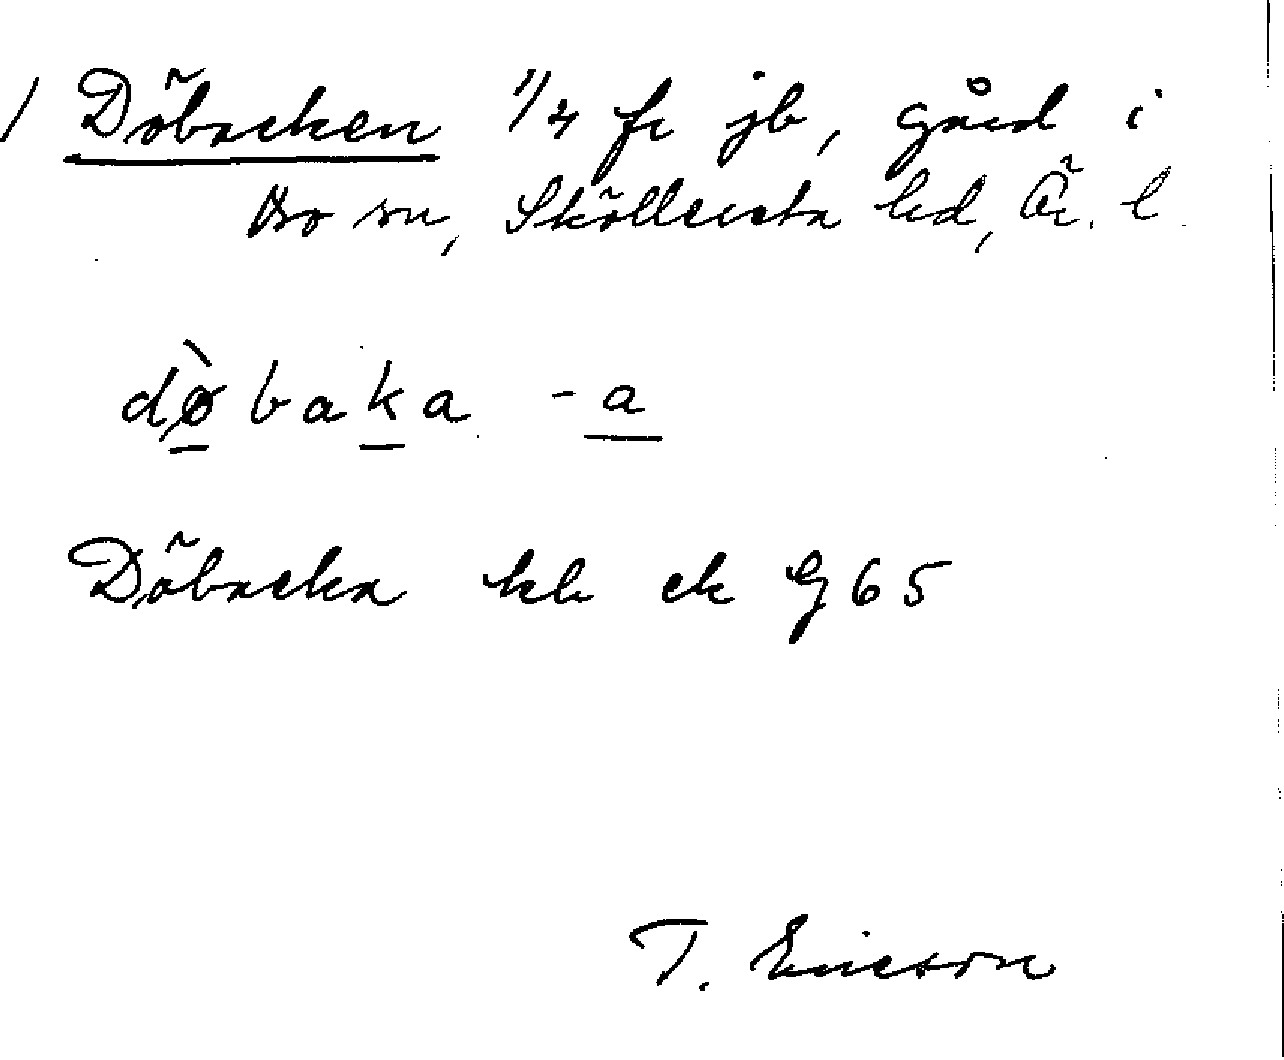 / Döbacken 1/4 fr jb, gård i
Bo sn, Sköllersta hd, Ör. l
dø̀baka -a
Döbacka kb ek G65
T. Ericson